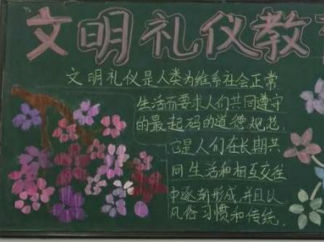 文明礼仪教
文明礼仪是人类为维系社会正常
生活而要求人们共同遵守
的最起码的道德规范，
它是人们在长期共
同生活和相互交往
中逐渐形成，并且以
风俗习惯和传统，